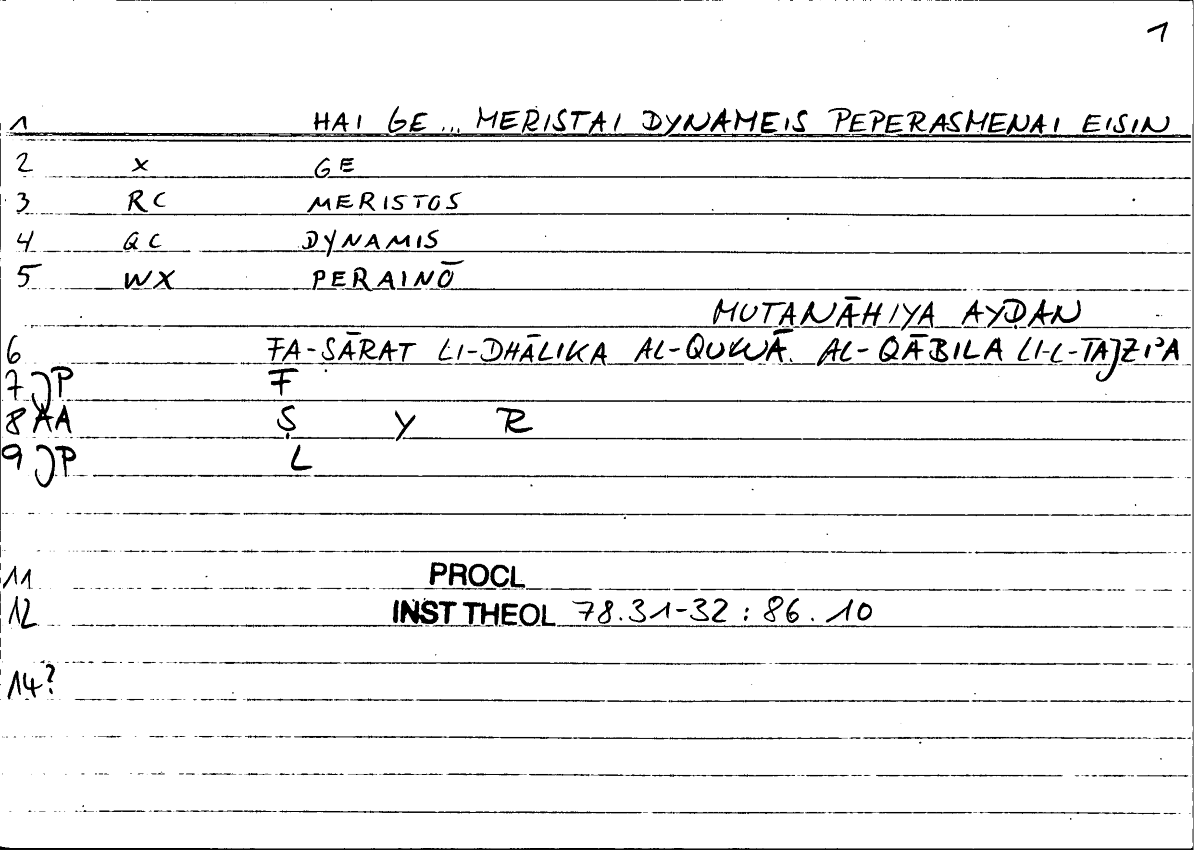 1
1 HAI GE... MERISTAI DYNAMEIS PEPERASMENAI EISIN
2 X GE
3 RC MERISTOS
4 QC DYNAMIS
5 WX PERAINŌ
MUTANĀHIYA AYḌAN
6 FA-ṢĀRAT LI-DHĀLIKA AL-QUWĀ. AL-QĀBILA LI-L-TAJZI'A
7 JP F
8 AA Ṣ Y R
9 JP L
11 PROCL
12 INST THEOL 78.31-32 : 86.10
14?